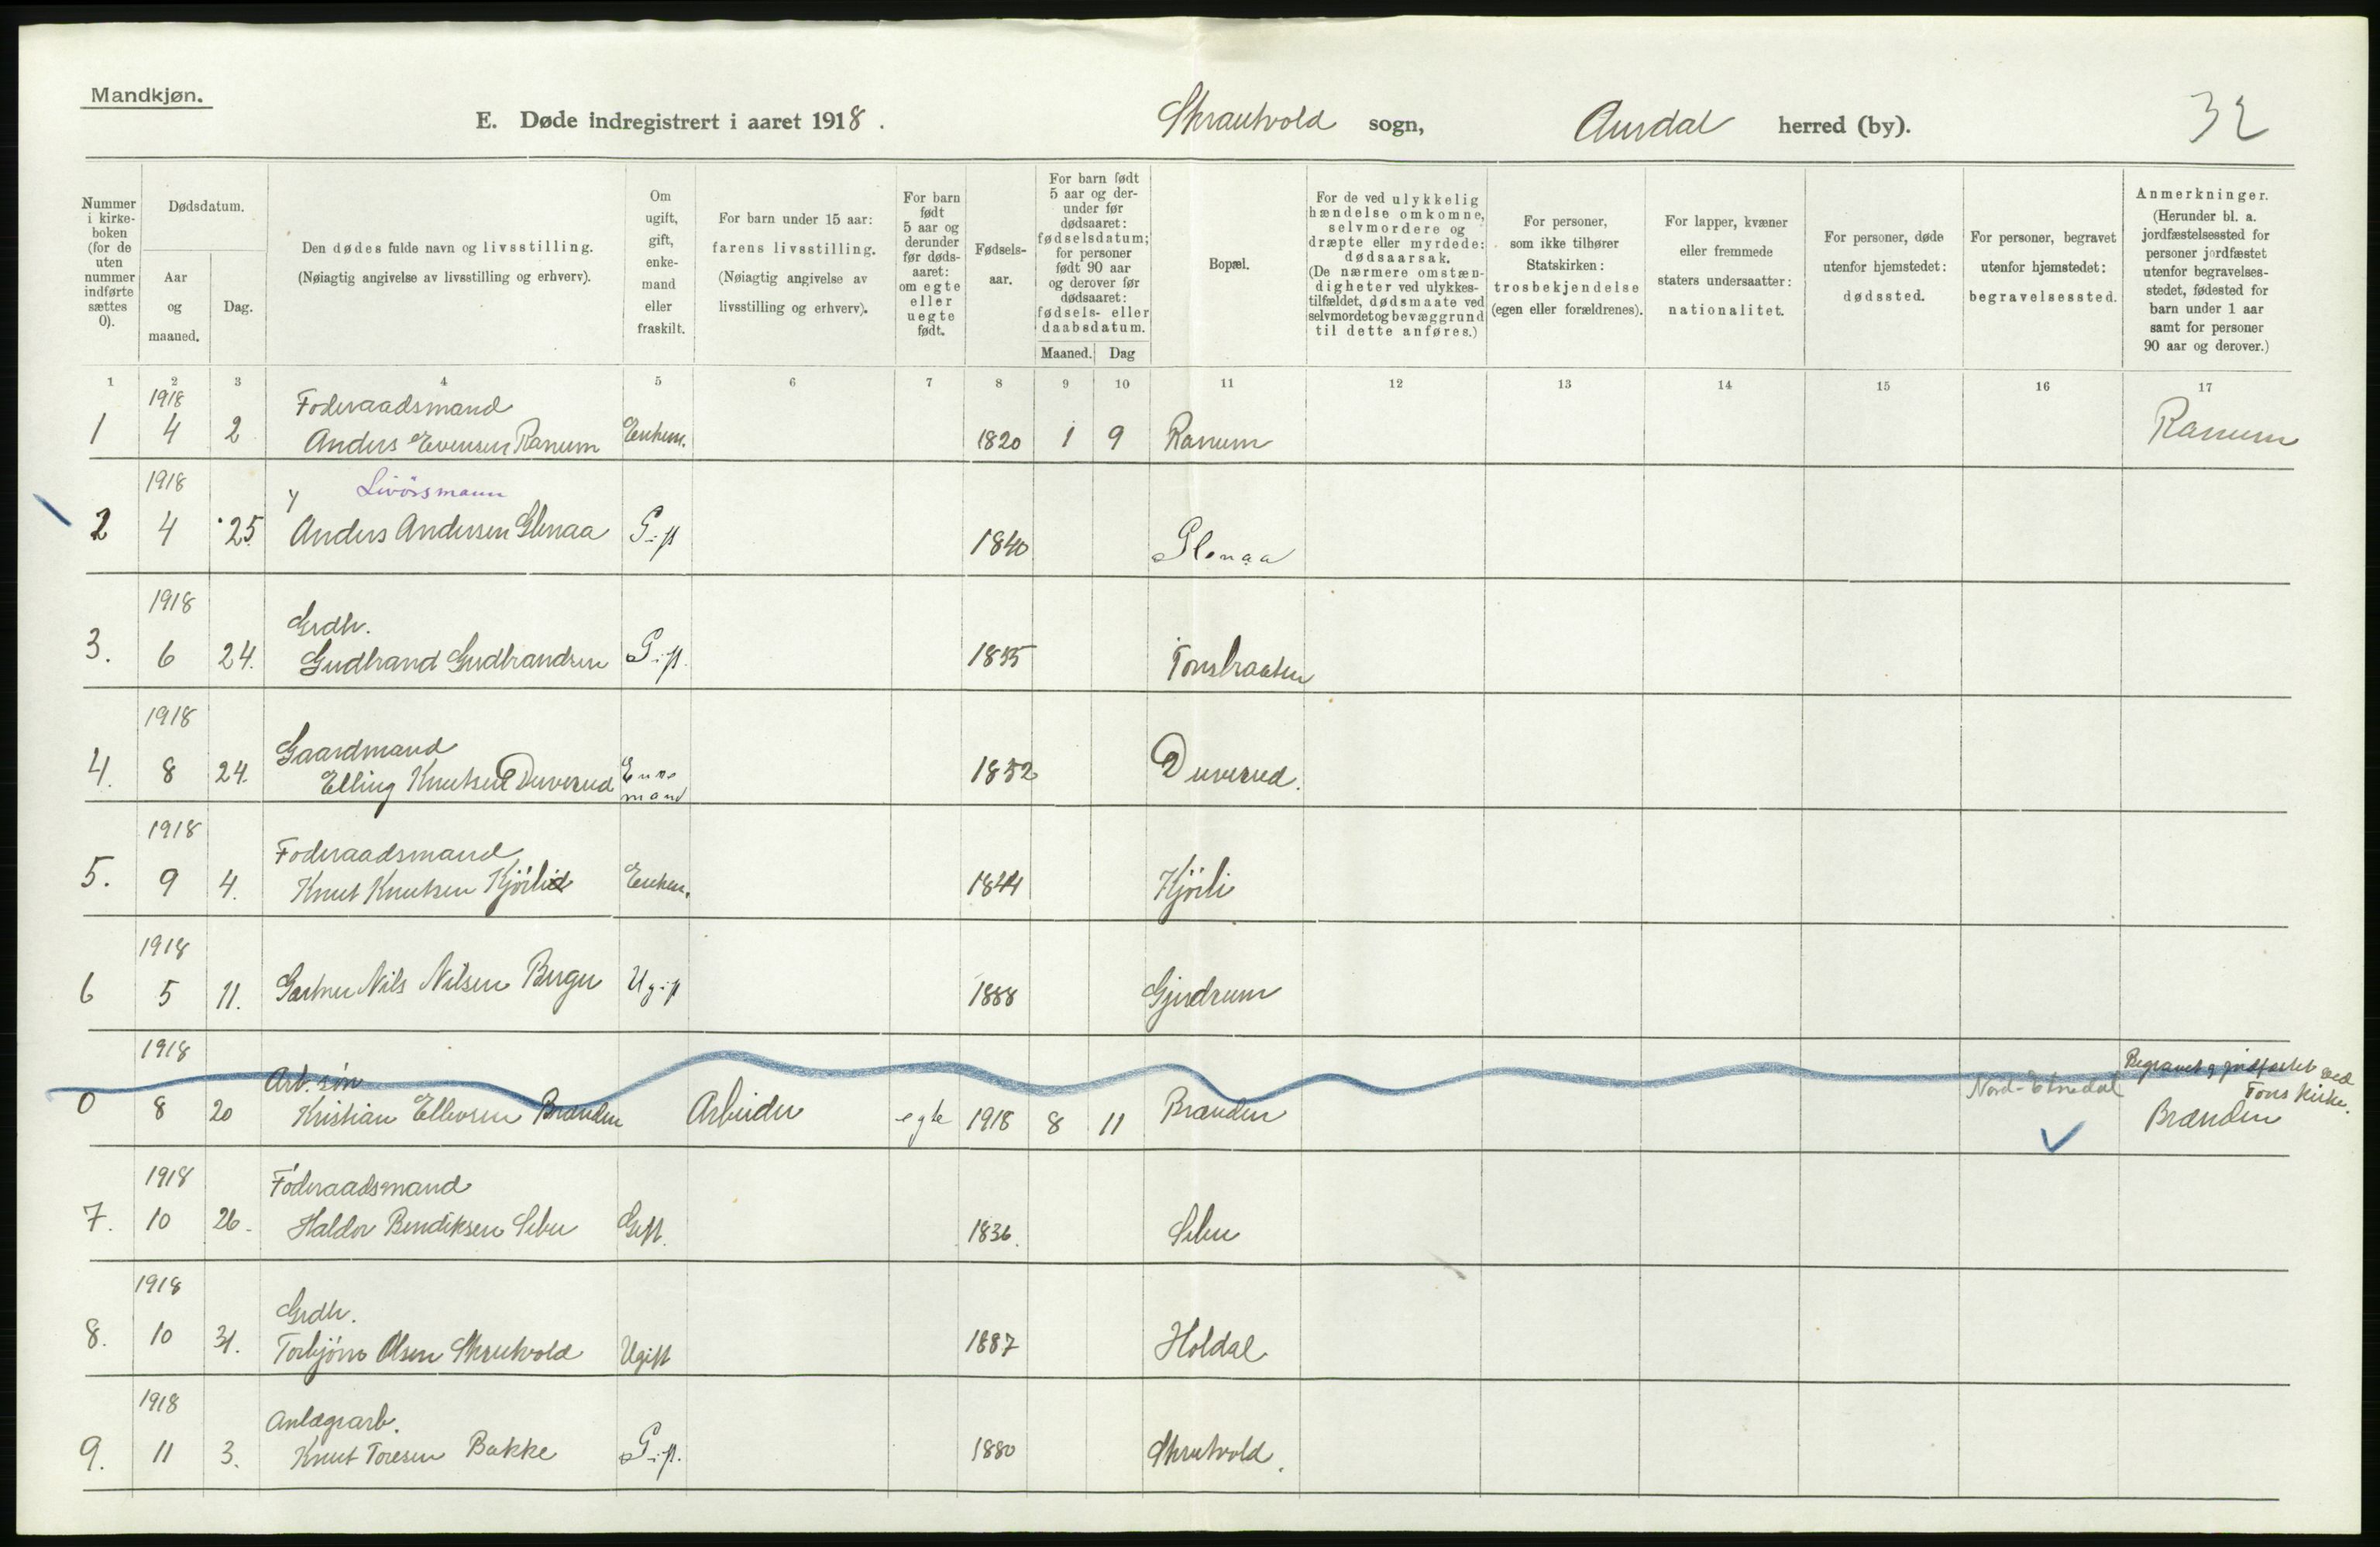 Mandkjøn.
E. Døde indregistrert i aaret 1918. Skrautvold sogn, Aurdal herred (by). 32
Nummer i kirke-boken (for de uten nummer indførte sættes 0).
Dødsdatum.
Aar og maaned.
Dag.
Den dødes fulde navn og livsstilling.
(Nøiagtig angivelse av livsstilling og erhverv).
Om ugift, gift, enke-mand eller fraskilt.
For barn under 15 aar: farens livsstilling.
(Nøiagtig angivelse av livsstilling og erhverv).
For barn født 5 aar og derunder før døds-aaret: om egte eller uegte født.
Fødsels-aar.
For barn født 5 aar og der-under før dødsaaret: fødselsdatum; for personer født 90 aar og derover før dødsaaret: fødsels- eller daabsdatum.
Maaned. Dag
Bopæl.
For de ved ulykkelig hændelse omkomne, selvmordere og dræpte eller myrdede: dødsaarsak.
(De nærmere omstæn-digheter ved ulykkes-tilfældet, dødsmaate ved selvmordet og bevæggrund til dette anføres.)
For personer, som ikke tilhører Statskirken: trosbekjendelse (egen eller forældrenes).
For lapper, kvæner eller fremmede staters undersaatter: nationalitet.
For personer, døde utenfor hjemstedet: dødssted.
For personer, begravet utenfor hjemstedet: begravelsessted.
Anmerkninger.
(Herunder bl. a. jordfæstelsessted for personer jordfæstet utenfor begravelses-stedet, fødested for barn under 1 aar samt for personer 90 aar og derover.)
1 2 3 4 5 6 7 8 9 10 11 12 13 14 15 16 17
1918 Foderaadsmand
1 4 2 Anders Evensen Ranum Enkem. 1820 1 9 Ranum Ranum
1918 Livörsmann
2 4 25. Anders Andersen Glenaa Gift 1840 Glenaa
1918 Grdbr.
3. 6 24. Gudbrand Gudbrandsen Gift. 1855 Tonsbraaten
1918 Gaardmand
4. 8 24. Elling Knutsen Duverud Enke mand 1852 Duverud.
1918 Foderaadsmand
5. 9 4. Knut Knutsen Kjörli Enkem. 1844 Kjörli
1918
6 5 11. Gartner Nils Nilsen Berger Ugift 1888 Gjerdrum
1918 Arb. søn Begravet og jordfæstet ved
0 8 20 Kristian Ellevsen Branden Arbeider egte 1918 8 11 Branden Nord-Etnedal Tons Kirke. Branden
1918 Föderaadsmand
7. 10 26. Haldor Bendiksen Sebu Gift. 1836. Sebu
1918 Grdbr.
8. 10 31. Torbjörn Olsen Skrutvold Ugift 1887 Holdal
1918 Anlægsarb.
9. 11 3. Knut Toresen Bakke Gift. 1880 Skrutvold.